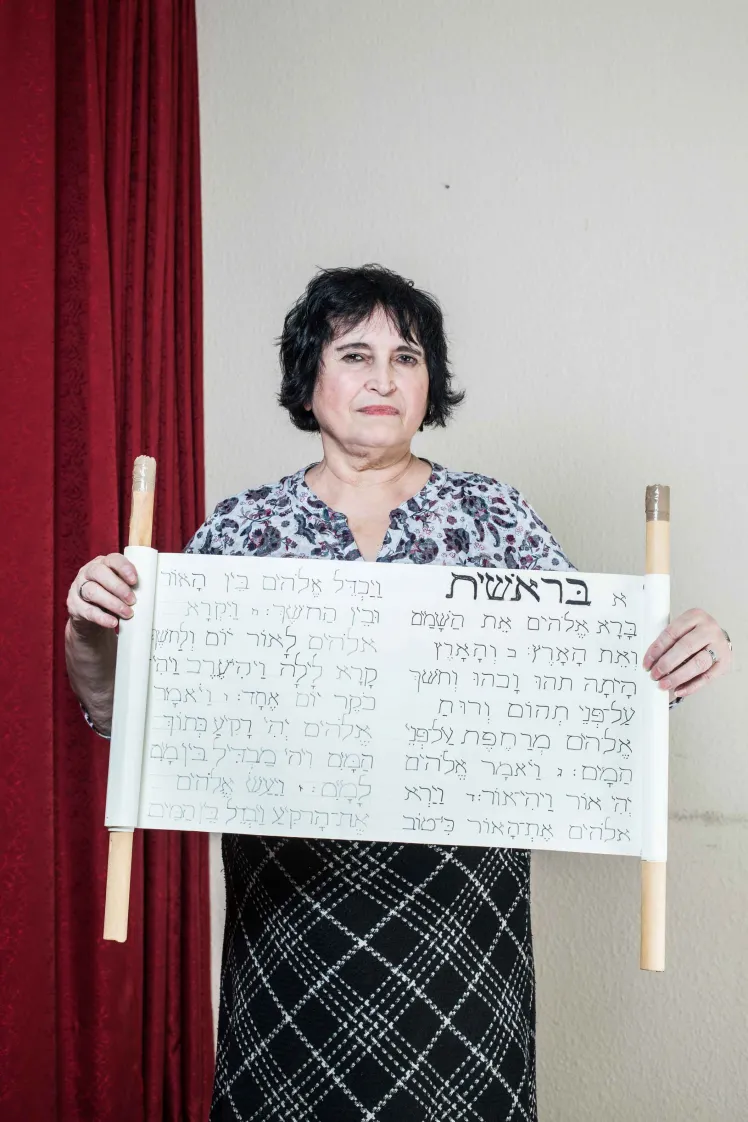 א בְּרֵאשִׁית
בָּרָא אֱלֹהִים אֵת הַשָּׁמַיִם
וְאֵת הָאָרֶץ: ב וְהָאָרֶץ
הָיְתָה תֹהוּ וָבֹהוּ וְחֹשֶׁךְ
עַל־פְּנֵי תְהוֹם וְרוּחַ
אֱלֹהִים מְרַחֶפֶת עַל־פְּנֵי
הַמָּיִם: ג וַיֹּאמֶר אֱלֹהִים
יְהִי אוֹר וַיְהִי־אוֹר: ד וַיַּרְא
אֱלֹהִים אֶת־הָאוֹר כִּי־טוֹב
וַיַּבְדֵּל אֱלֹהִים בֵּין הָאוֹר
וּבֵין הַחֹשֶׁךְ: ה וַיִּקְרָא
אֱלֹהִים לָאוֹר יוֹם וְלַחֹשֶׁךְ
קָרָא לָיְלָה וַיְהִי־עֶרֶב וַיְהִי־
בֹקֶר יוֹם אֶחָד: ו וַיֹּאמֶר
אֱלֹהִים יְהִי רָקִיעַ בְּתוֹךְ
הַמָּיִם וִיהִי מַבְדִּיל בֵּין מַיִם
לָמָיִם: ז וַיַּעַשׂ אֱלֹהִים
אֶת־הָרָקִיעַ וַיַּבְדֵּל בֵּין הַמַּיִם